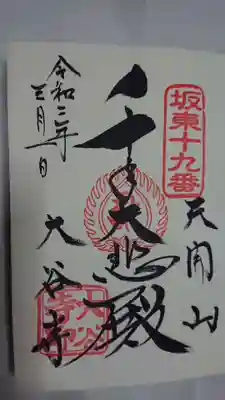 坂東十九番
天開山
千手大悲殿
大谷寺
令和二年
三月一日